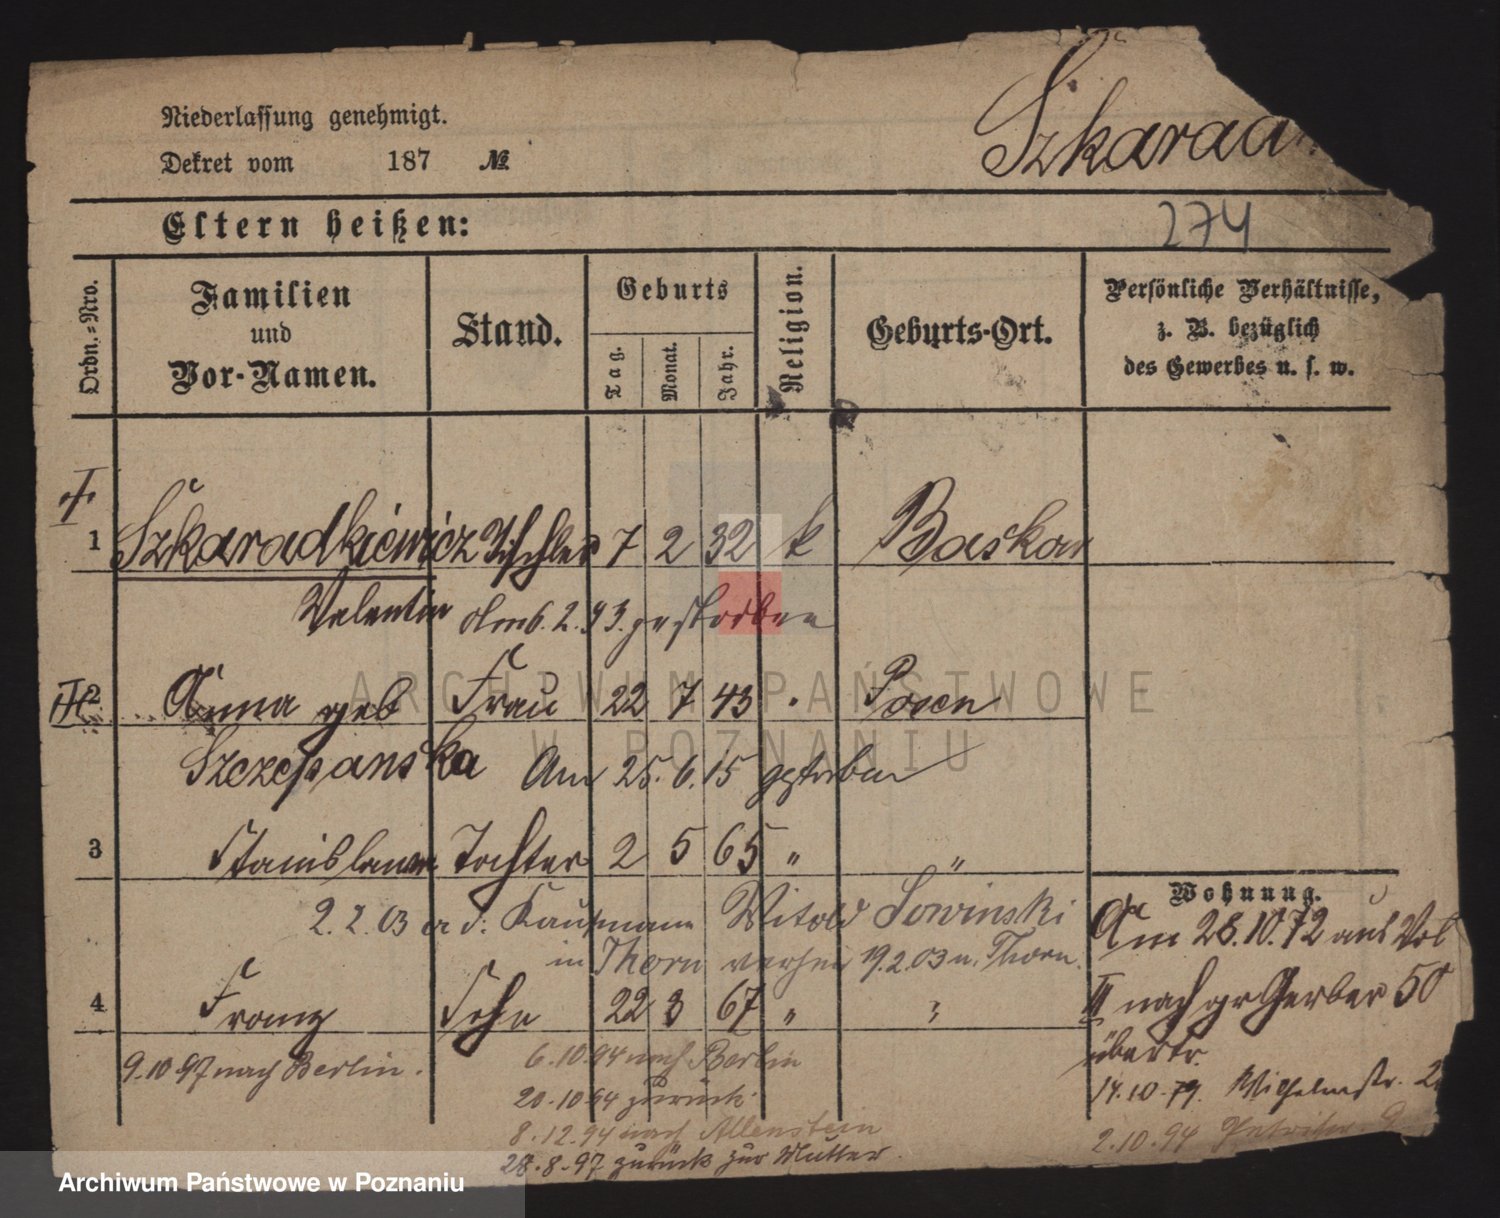 Niederlassung genehmigt.
Dekret vom 187 №
Szkarad
Eltern heißen:
274
Ordn.=Nro.
Familien
und
Vor-Namen.
Stand.
Geburts
Tag.
Monat.
Jahr.
Religion.
Geburts-Ort.
Persönliche Verhältnisse,
z. B. bezüglich
des Gewerbes u. s. w.
1 Szkaradkiewicz Tischler 7 2 32 k Baskow
Valentin am 6.2.93. gestorben
2 Anna geb Frau 22 7 43 " Posen
Szczepanska Am 25.6.15 gestorben
3 Stanislawa Tochter 2 5 65 " "
Wohnung.
2.2.03 Kaufmann Witold Lowinski
in Thorn 19.2.03 n. Thorn.
Am 28.10.72 aus Vol
II nach gr Gerber 50
übertr.
4 Franz Sohn 22 3 67 " "
9.10.97 nach Berlin.
6.10.94 nach Berlin
20.10.94 zurück.
8.12.94 nach Allenstein
28.8.97 zurück zur Mutter.
14.10.79. Wilhelmstr. 2
2.10.94
ARCHIWUM PAŃSTWOWE
W POZNANIU
Archiwum Państwowe w Poznaniu